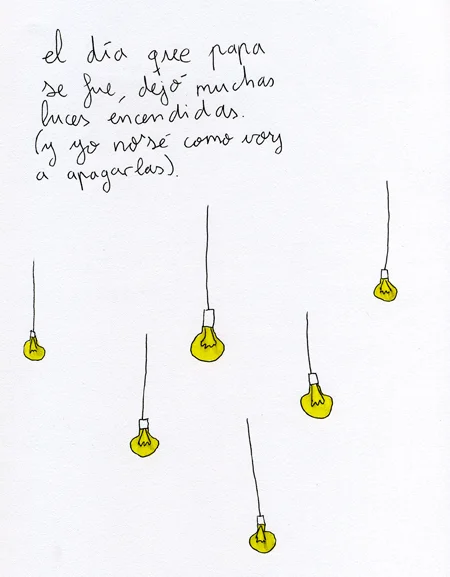 el día que papa
se fue, dejó muchas
luces encendidas.
(y yo no sé como voy
a apagarlas).